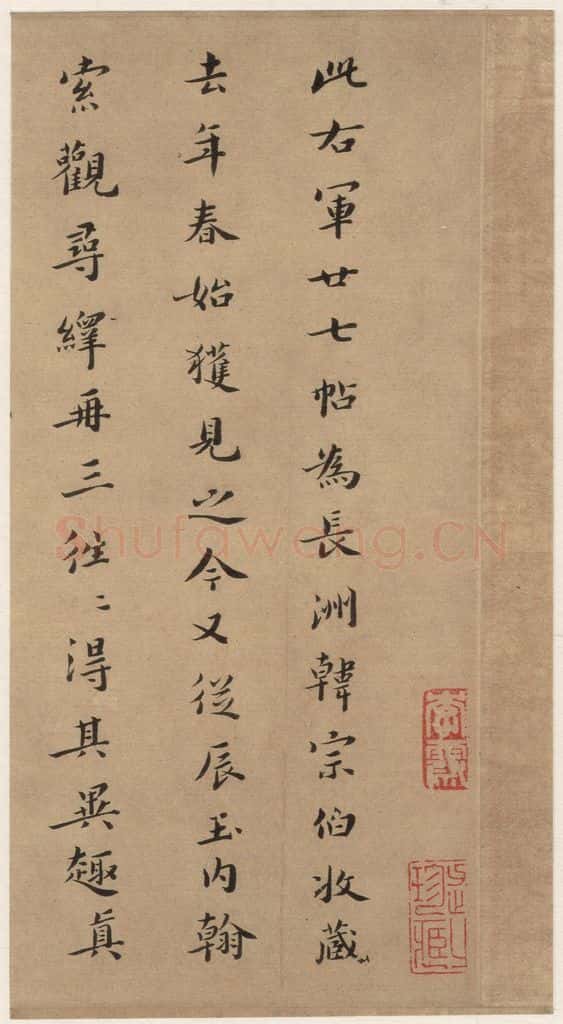 此右軍廿七帖為長洲韓宗伯收藏
去年春始獲見之今又從辰玉内翰
索觀尋繹再三往〻得其異趣真
Shufawang.CN